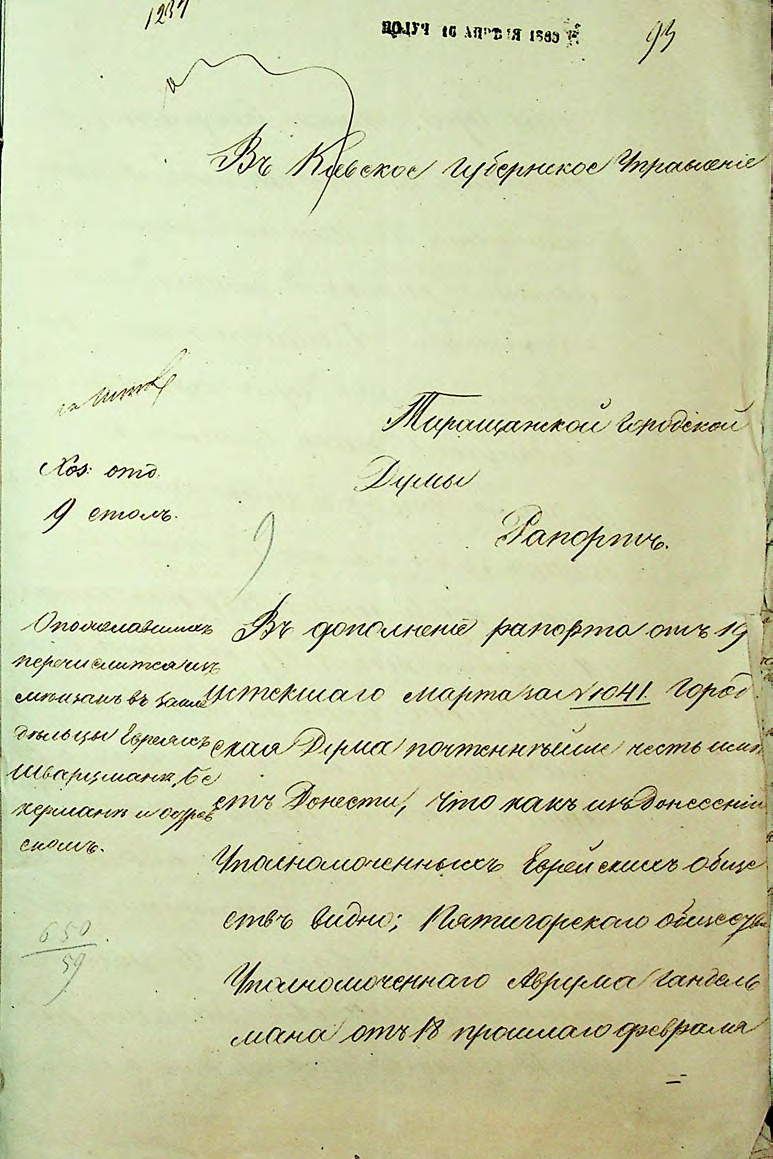 1237
ПОЛУЧ 16 АПРѢЛЯ 1869
93
Въ Киевское Губернское Управленіе
Таращанской Городской
Думы
Хоз: отд.
9 столъ.
Рапортъ.
9
О пожелавшихъ
перечислится изъ
мѣщанъ въ земле
дѣльцы Евреяхъ
Шварцманѣ, Бе
керманѣ и остров
скомъ.
650
59
Въ дополненіе рапорта отъ 19
истекшаго марта за №1041. Город
ская Дума почтеннѣйше честь имѣ
етъ Донести, что какъ изъ Донесеній
Уполномоченныхъ Еврейскихъ обще
ствъ видно; Пятигорскаго общества
Уполномоченнаго Аврума Гандель
мана отъ 18 прошлаго февраля